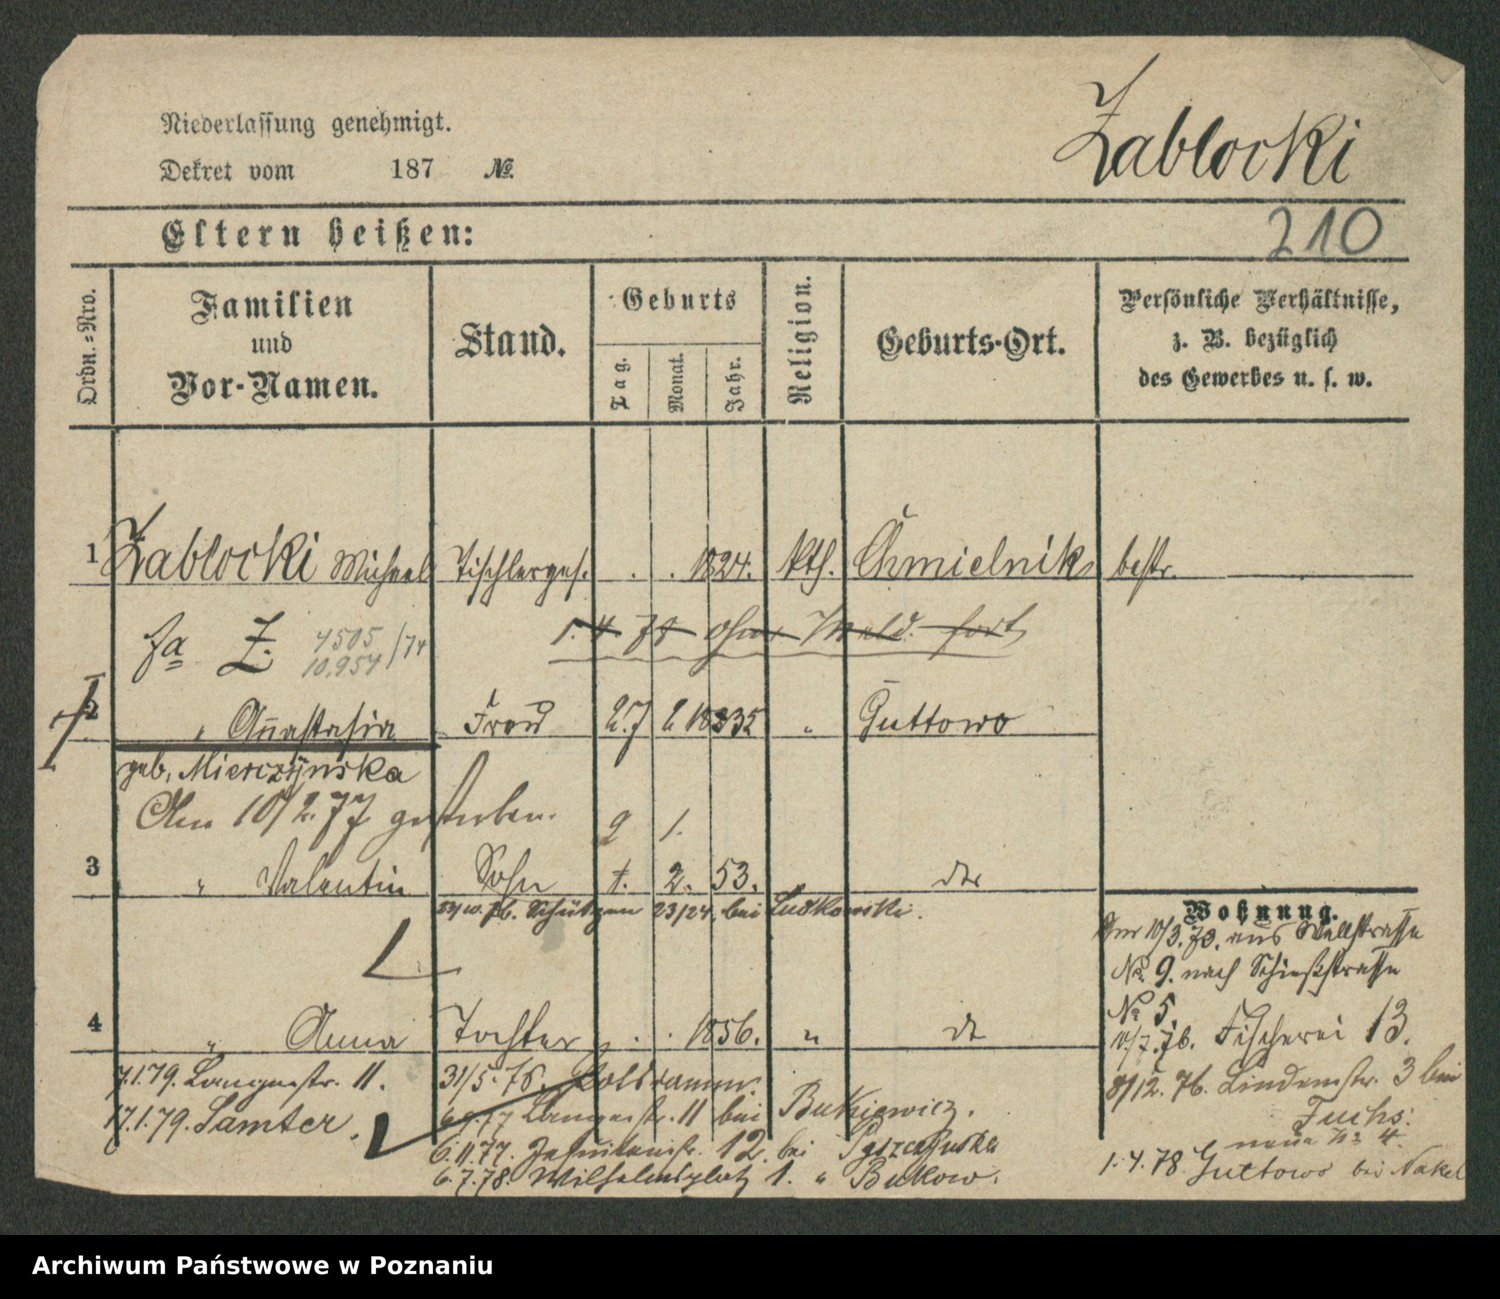 Niederlassung genehmigt.
Zablocki
Dekret vom 187 №.
Eltern heißen:
210
Ordn.-Nro.
Familien und Vor-Namen.
Stand.
Geburts
Tag. Monat. Jahr.
Religion.
Geburts-Ort.
Persönliche Verhältnisse,
z. B. bezüglich
des Gewerbes u. s. w.
1 Zablocki Michael Tischlerges. . . 1824. kth. Chmielnik bestr.
fa Z. 4505
10,954 /74
1. 4 78 ohne Meld. fort
2 " Anastasia Frau 27 2 1835 " Guttowo
geb. Mierczynska
Am 10/2. 77 gestorben. 9 1.
3 " Valentin Sohn 7. 2. 53. dto
Schützen 23/24. bei Ludkowski.
4 " Anna Tochter . . 1856. " dt
Wohnung.
10/3. 73. aus Wallstrasse
№ 9. nach Schießstrasse
№ 5.
10/7. 76. Fischerei 13.
8/12. 76. Lindenstr. 3 bei
Fuchs.
neue № 4.
1. 4. 78. Guttowo bei Nakel
7.1.79. Langestr. 11.
17.1.79. Samter.
31/5. 76.
Langestr. 11 bei Butkiewicz.
6.11.77. Jesuitenstr. 12. bei
6. 7. 78. Wilhelmsplatz 1. " Bukow.
Archiwum Państwowe w Poznaniu